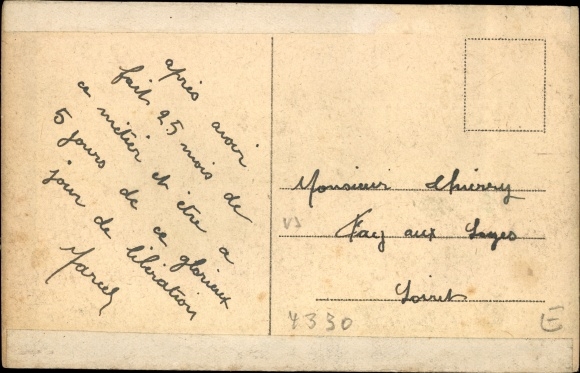 après avoir
fait 25 mois de
ce métier et être a
5 jours de ce glorieux
jour de libération
Marcel
Monsieur Thierry
Fay aux Loges
Loiret
4330
E